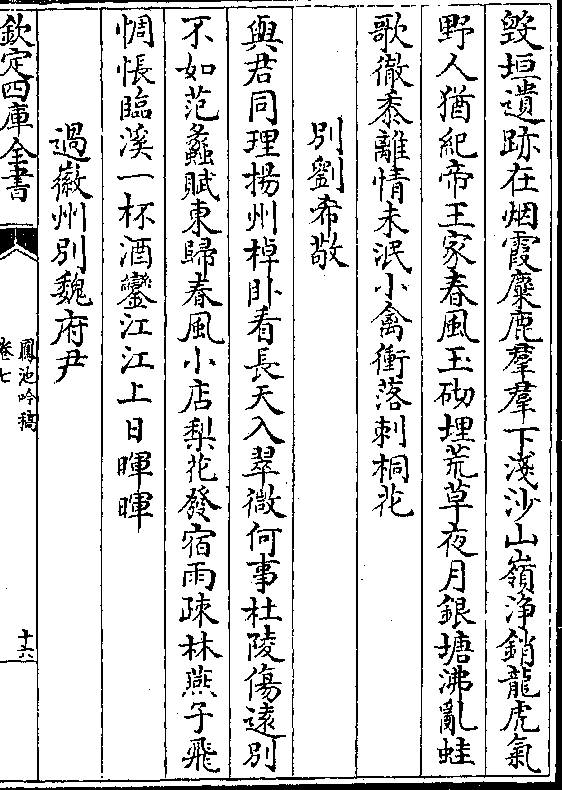 毀垣遺跡在烟霞麋鹿羣羣下淺沙山嶺浄銷龍虎氣
野人猶紀帝王家春風玉砌埋荒草夜月銀塘沸亂蛙
歌徹黍離情未泯小禽衝落刺桐花
別劉希敬
與君同理揚州棹卧看長天入翠微何事杜陵傷遠別
不如范蠡賦東歸春風小店梨花發宿雨疎林燕子飛
惆悵臨溪一杯酒鑾江江上日暉暉
過徽州別魏府尹
欽定四庫全書
鳳池吟稿
卷七
十六